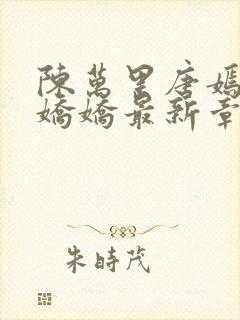 陳萬里唐嫣
嬌嬌最新章
朱時茂